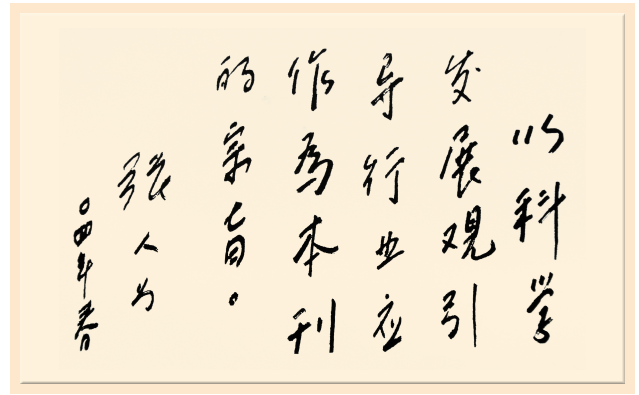 以科學
发展观引
导行业应
作為本刊
的宗旨。
張人为
〇四年春